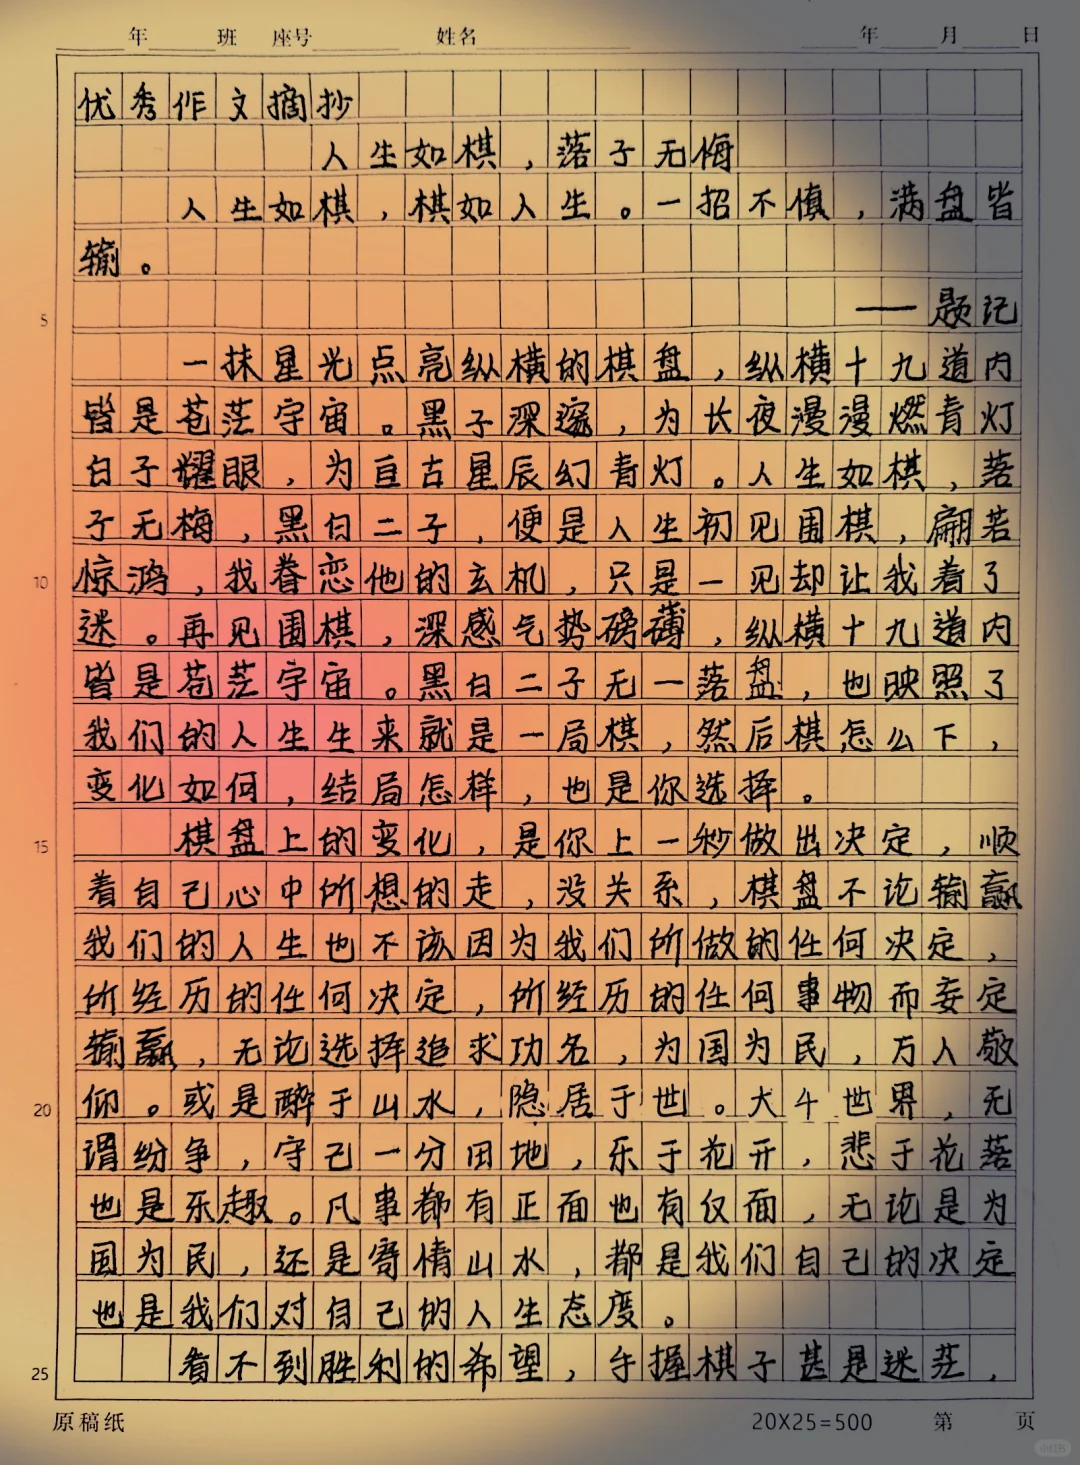 年 班 座号 姓名 年 月 日
优秀作文摘抄
人生如棋，落子无悔
人生如棋，棋如人生。一招不慎，满盘皆
输。
5 ——题记
一抹星光点亮纵横的棋盘，纵横十九道内
皆是苍茫宇宙。黑子深邃，为长夜漫漫燃青灯
白子耀眼，为亘古星辰幻青灯。人生如棋，落
子无梅，黑白二子，便是人生初见围棋，翩若
10 惊鸿，我眷恋他的玄机，只是一见却让我着了
迷。再见围棋，深感气势磅礴，纵横十九道内
皆是苍茫宇宙。黑白二子无一落盘，也映照了
我们的人生生来就是一局棋，然后棋怎么下，
变化如何，结局怎样，也是你选择。
15 棋盘上的变化，是你上一秒做出决定，顺
着自己心中所想的走，没关系，棋盘不论输赢
我们的人生也不该因为我们所做的任何决定，
所经历的任何决定，所经历的任何事物而妄定
输赢，无论选择追求功名，为国为民，万人敬
20 仰。或是醉于山水，隐居于世。大斗世界，无
谓纷争，守己一分田地，乐于花开，悲于花落
也是乐趣。凡事都有正面也有仅面，无论是为
国为民，还是寄情山水，都是我们自己的决定
也是我们对自己的人生态度。
25 看不到胜利的希望，手握棋子甚是迷茫，
原稿纸 20X25=500 第 页
小红书